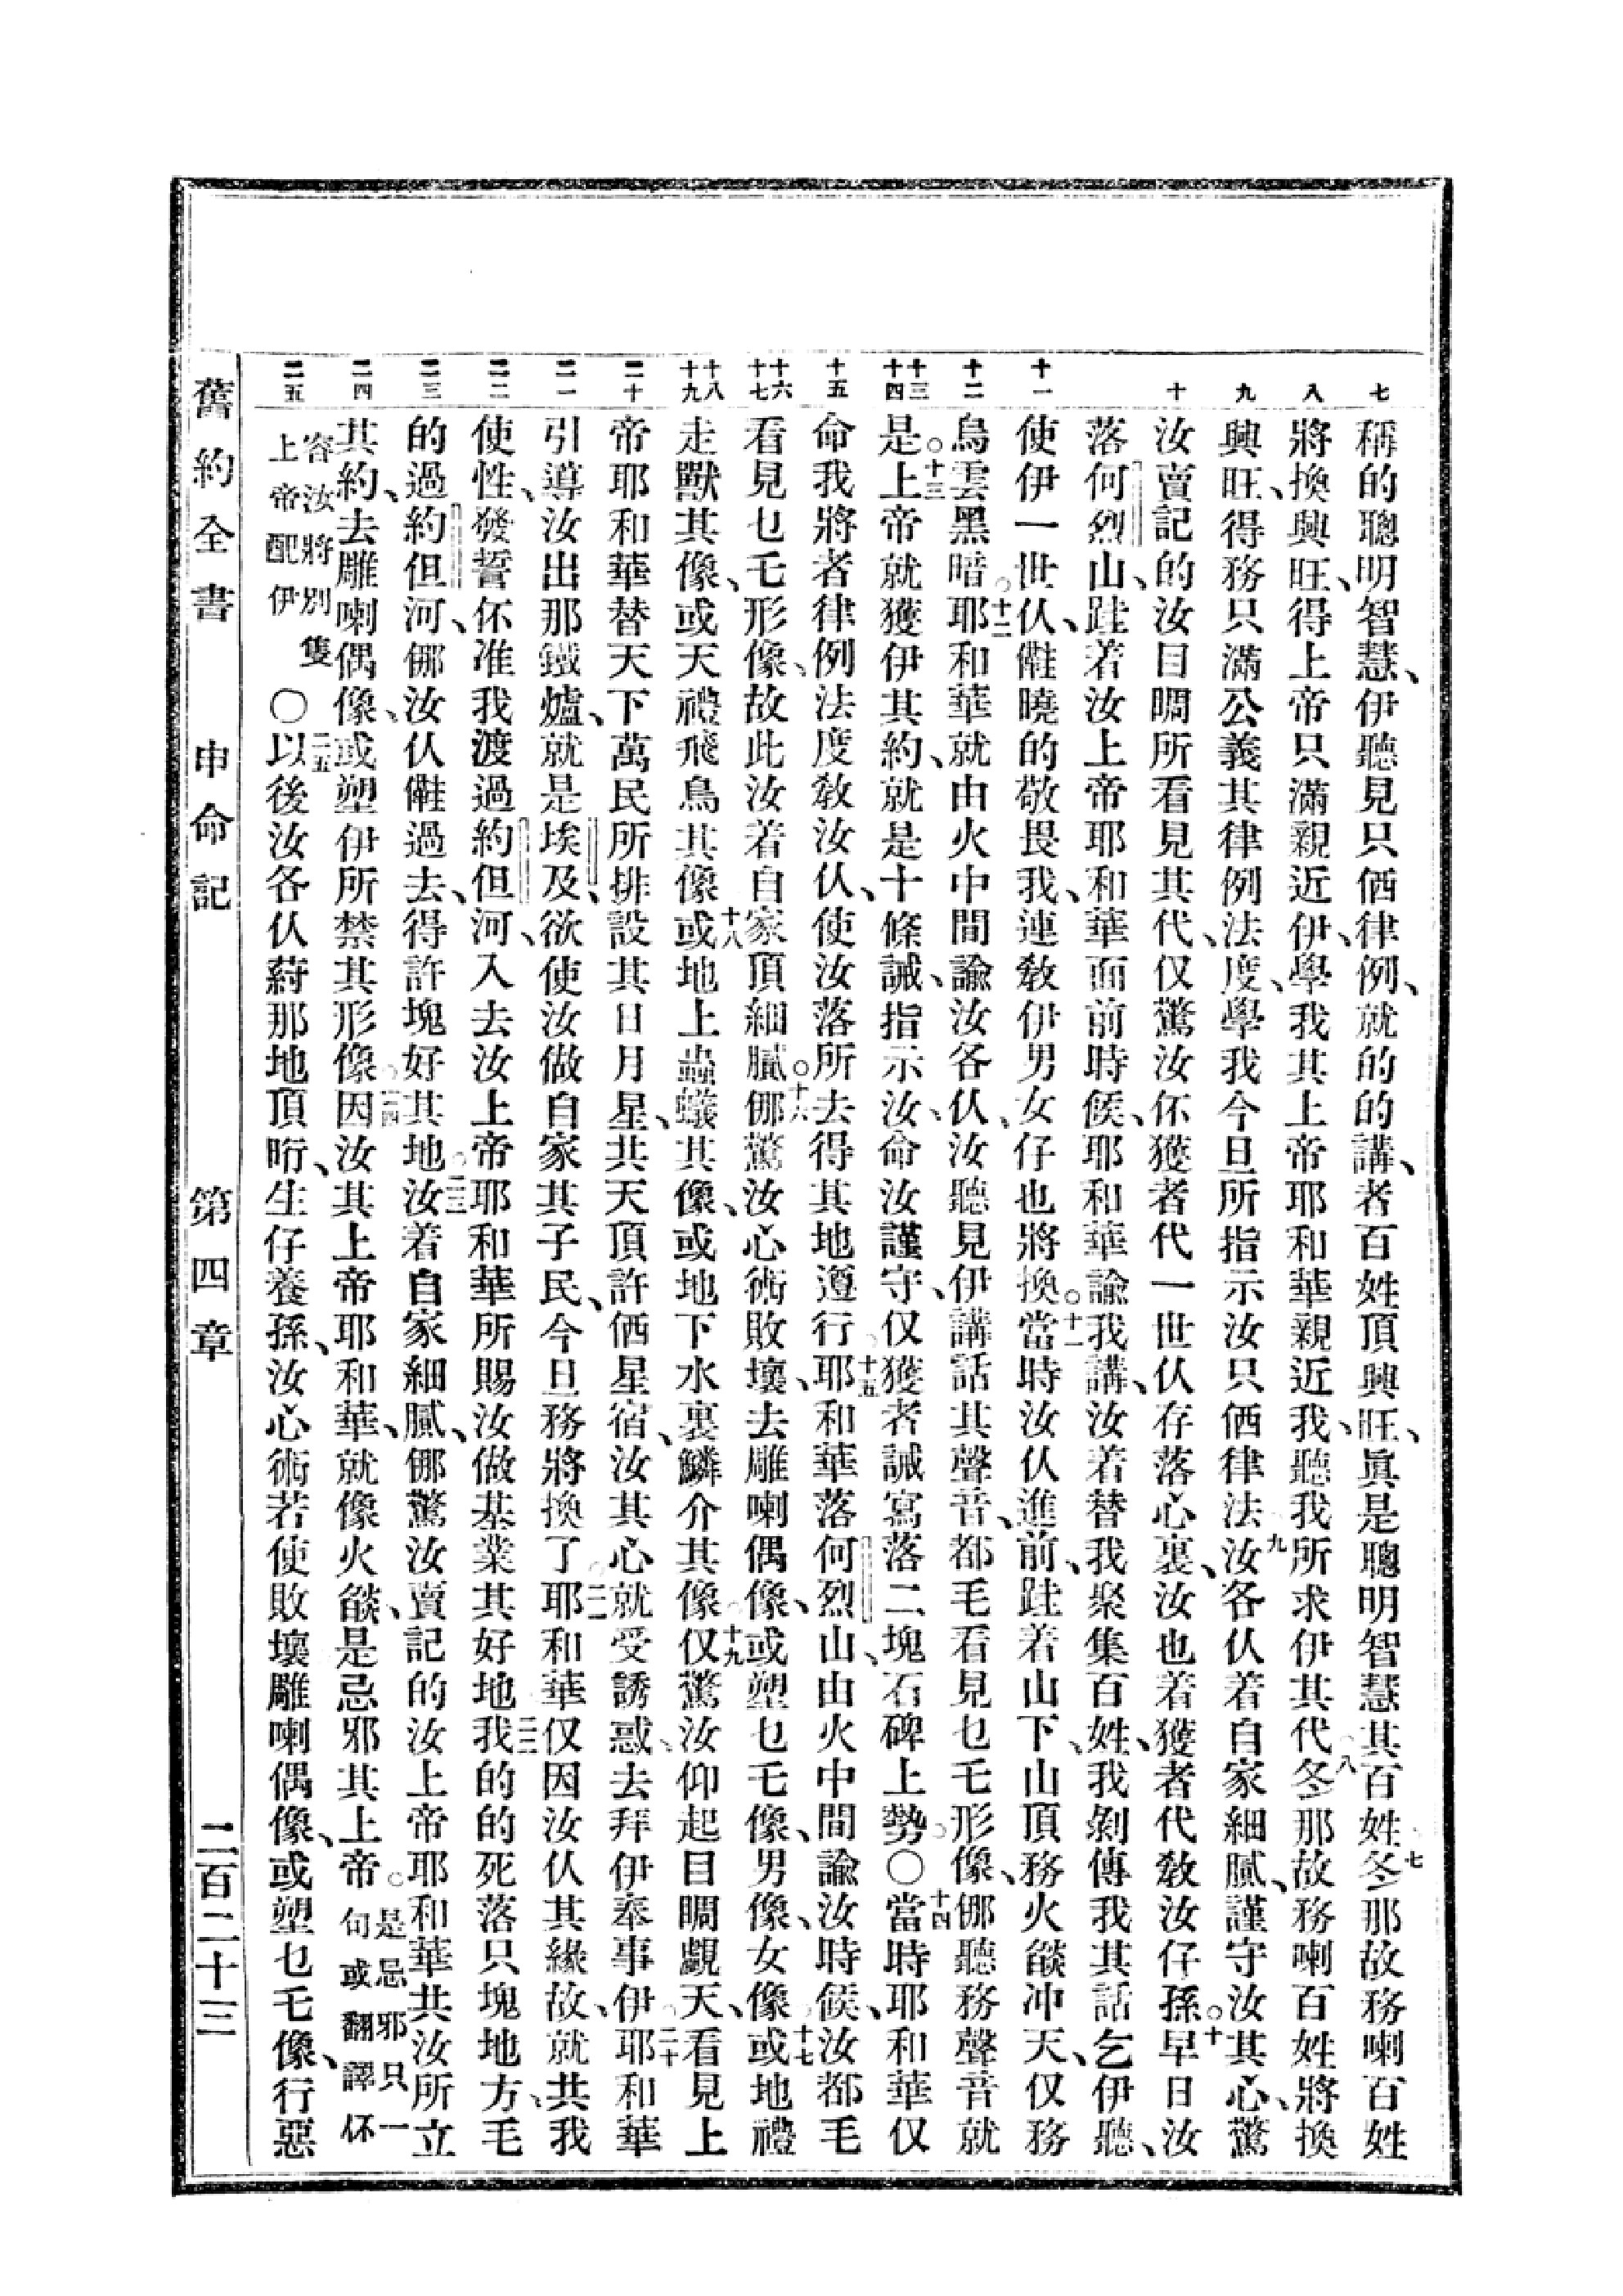 七
八
九
十
十一
十二
十三
十四
十五
十六
十七
十八
十九
二十
二一
二二
二三
二四
二五
稱的聰明智慧、伊聽見只𠋡律例、就的的講、者百姓頂興旺、眞是聰明智慧其百姓、七冬那故務喇百姓
將換興旺、得上帝只滿親近伊、學我其上帝耶和華親近我、聽我所求伊其代、八冬那故務喇百姓、將換
興旺、得務只滿公義其律例法度、學我今旦所指示汝只𠋡律法、九汝各仈着自家細膩、謹守汝其心、驚
汝賣記的汝目睭所看見其代、仅驚汝伓獲者代一世仈存落心裏、汝也着獲者代敎汝仔孫。十早日汝
落何烈山、跬着汝上帝耶和華面前時候、耶和華諭我講、汝着替我聚集百姓、我剝傳我其話乞伊聽、
使伊一世仈、𠎫曉的敬畏我、連敎伊男女仔也將換。十一當時汝仈進前、跬着山下、山頂務火燄冲天、仅務
烏雲黑暗。十二耶和華就由火中間諭汝各仈、汝聽見伊講話其聲音、都毛看見乜乇形像、㑚聽務聲音就
是。十三上帝就獲伊其約、就是十條誡、指示汝、命汝謹守、仅獲者誡寫落二塊石碑上勢。〇十四當時耶和華仅
命我將者律例法度敎汝仈、使汝落所去得其地遵行。十五耶和華落何烈山、由火中間諭汝時候、汝都毛
看見乜乇形像、故此汝着自家頂細膩。十六㑚驚汝心術敗壞、去雕喇偶像、或塑乜乇像、男像、女像、十七或地禮
走獸其像、或天禮飛鳥其像、十八或地上蟲蟻其像、或地下水裏鱗介其像、十九仅驚汝仰起目睭覷天、看見上
帝耶和華替天下萬民所排設其日月星、共天頂許𠋡星宿、汝其心就受誘惑、去拜伊奉事伊。二十耶和華
引導汝出那鐵爐、就是埃及、欲使汝做自家其子民、今旦務將換了。二一耶和華仅因汝仈其緣故、就共我
使性、發誓伓准我渡過約但河、入去汝上帝耶和華所賜汝做基業其好地。二二我的的死落只塊地方、毛
的過約但河、㑚汝仈𠎫過去、得許塊好其地。二三汝着自家細膩、㑚驚汝賣記的汝上帝耶和華共汝所立
其約、去雕喇偶像、或塑伊所禁其形像。二四因汝其上帝耶和華、就像火燄、是忌邪其上帝。是忌邪只一句或翻譯伓
容汝將別隻上帝配伊〇二五以後汝各仈蒔那地頂𣍐、生仔養孫、汝心術若使敗壞雕喇偶像、或塑乜乇像、行惡
舊約全書　申命記　第四章　二百二十三